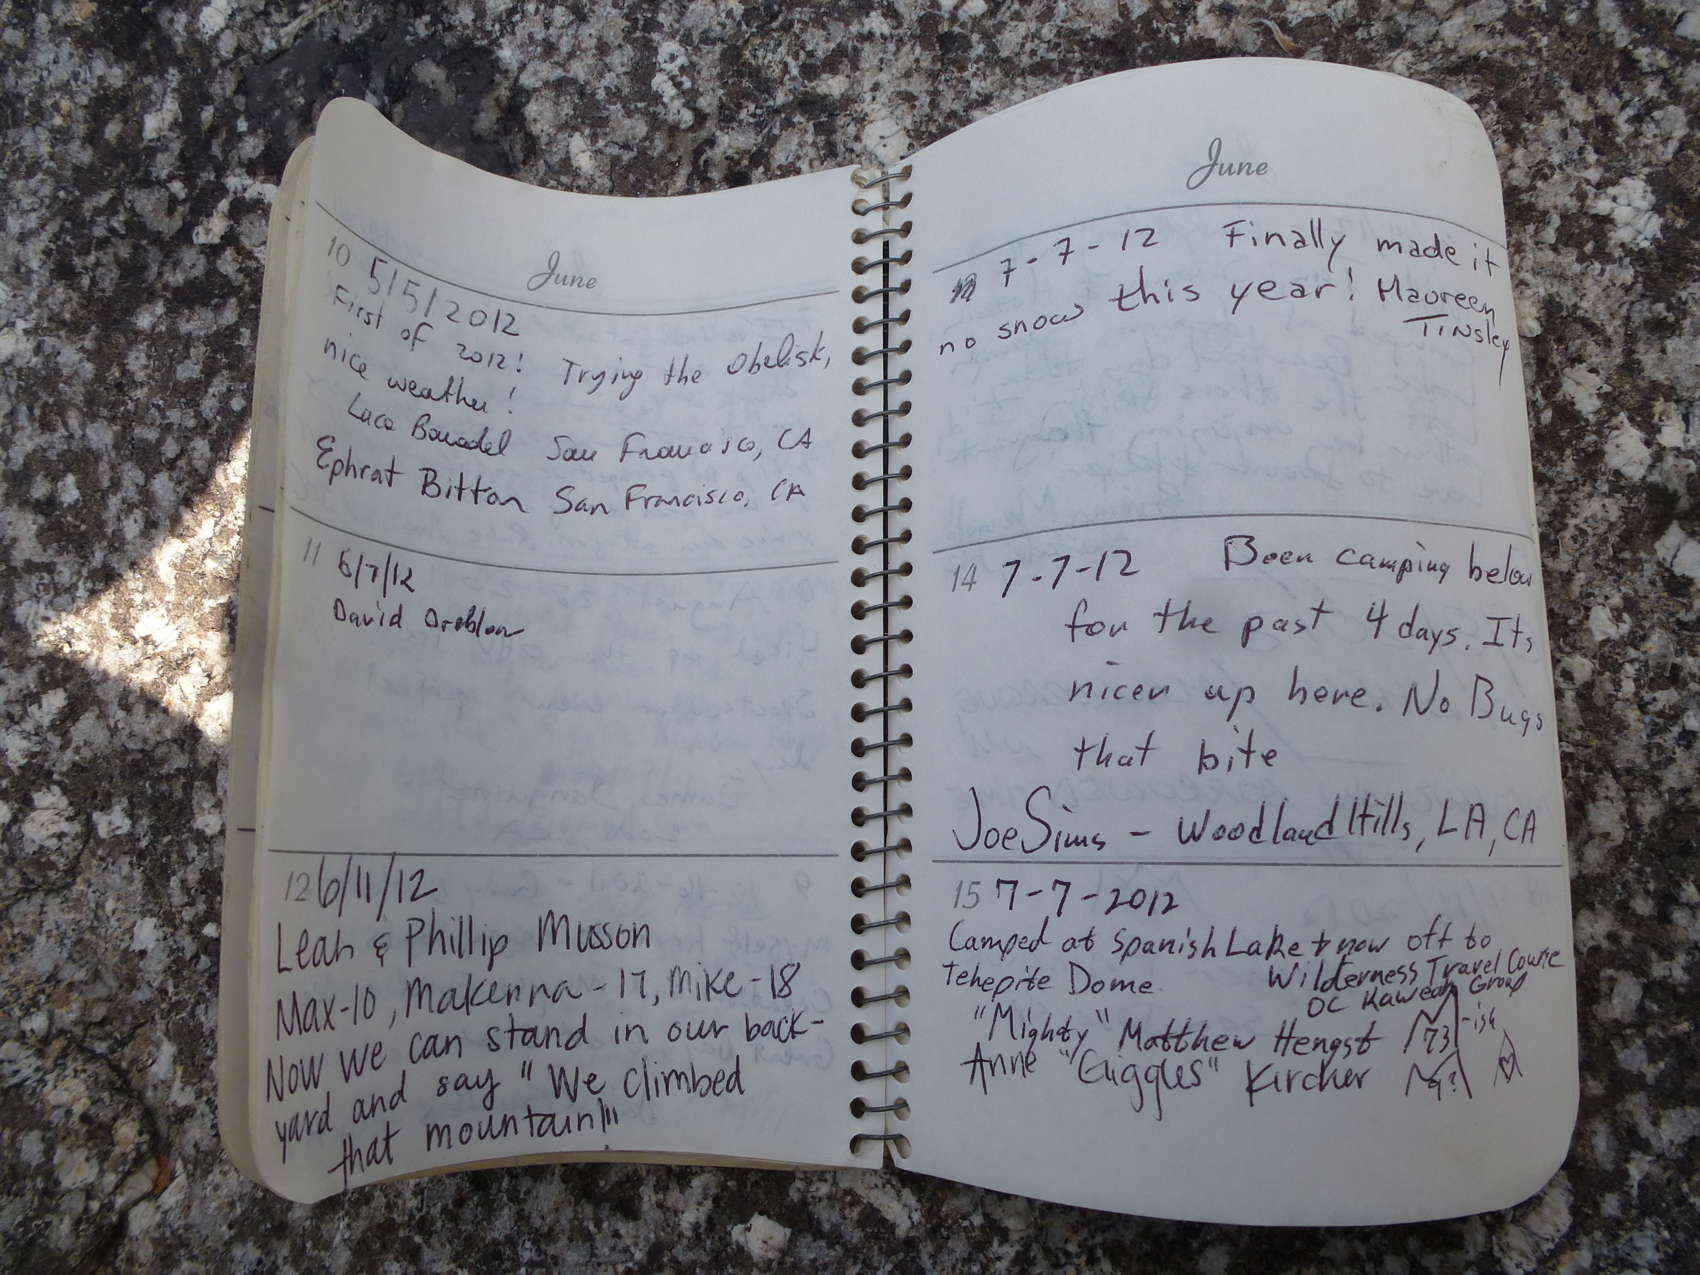 June
10 5/5/2012
First of 2012! Trying the Obelisk,
nice weather!
San Francisco, CA
Ephrat Bitton San Francisco, CA
11 6/7/12
David
12 6/11/12
Leah & Phillip Musson
Max-10, Makenna-17, Mike-18
Now we can stand in our back-
yard and say "We climbed
that mountain!!"
June
7-7-12 Finally made it
no snow this year! Maureen
Tinsley
14 7-7-12 Been camping below
for the past 4 days. Its
nicer up here. No Bugs
that bite
Joe Sims - Woodland Hills, LA, CA
15 7-7-2012
Camped at Spanish Lake + now off to
Tehepite Dome. Wilderness Travel Course
OC Kaweah Group
"Mighty" Matthew Hengst 73 -ish
Anne "Giggles" Kircher